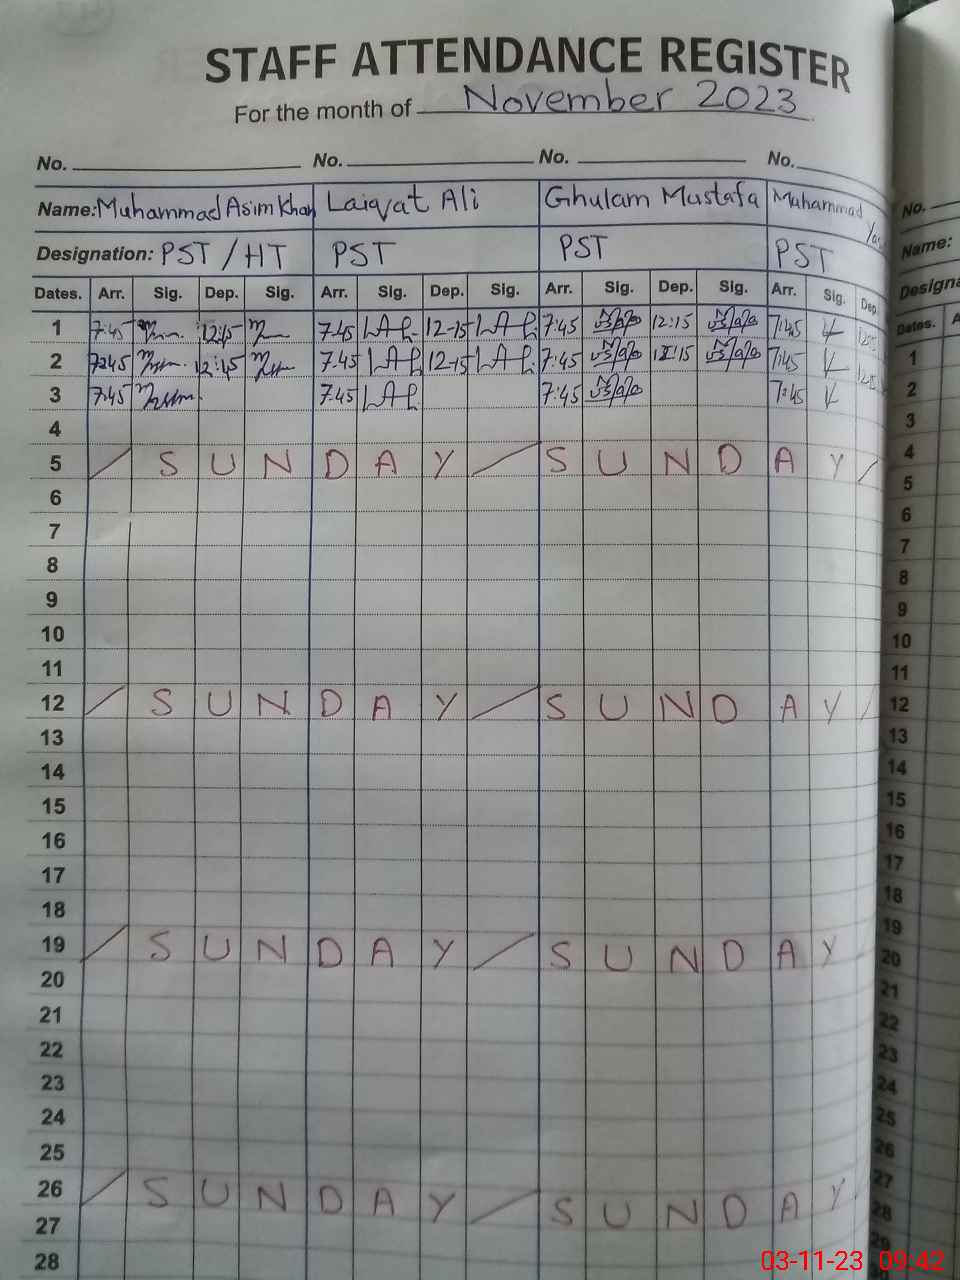 STAFF ATTENDANCE REGISTER
For the month of November 2023
No. No. No. No.
Name: Muhammad Asim Khan Laiqat Ali Ghulam Mustafa Muhammad
Designation: PST / HT PST PST PST
Dates. Arr. Sig. Dep. Sig. Arr. Sig. Dep. Sig. Arr. Sig. Dep. Sig. Arr. Sig. Dep.
1 7:45 12:15 7:45 12-15 7:45 12:15 7:45
2 7:45 12:15 7.45 12-15 7:45 12:15 7:45
3 7:45 7.45 7:45 7:45
4
5 / S U N D A Y / S U N D A Y /
6
7
8
9
10
11
12 / S U N D A Y / S U N D A Y /
13
14
15
16
17
18
19 / S U N D A Y / S U N D A Y
20
21
22
23
24
25
26 / S U N D A Y / S U N D A Y
27
28
No.
Name:
Designa
Dates. A
1
2
3
4
5
6
7
8
9
10
11
12
13
14
15
16
17
18
19
20
21
22
23
24
25
26
27
28
29
03-11-23 09:42